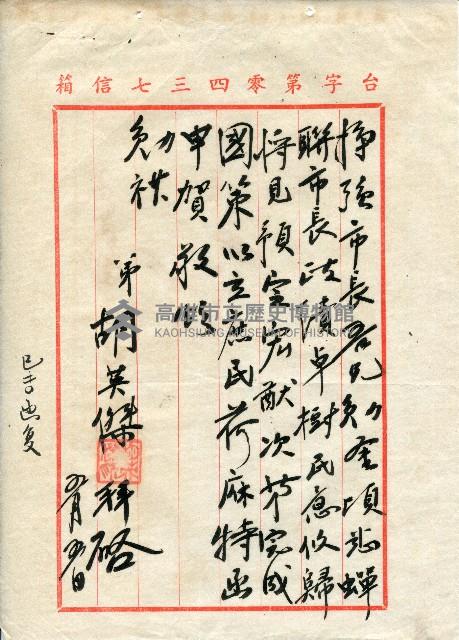 台字第零四三七信箱
掙強市長吾兄勛鑒頃悉蟬
聯市長政績卓樹民意攸歸
將見預定宏猷次第完成
國策以立庶民荷庥特函
申賀敬頌
勛祺
弟胡英傑拜啟
五月
已函復
高雄市立歷史博物館
KAOHSIUNG MUSEUM OF HISTORY